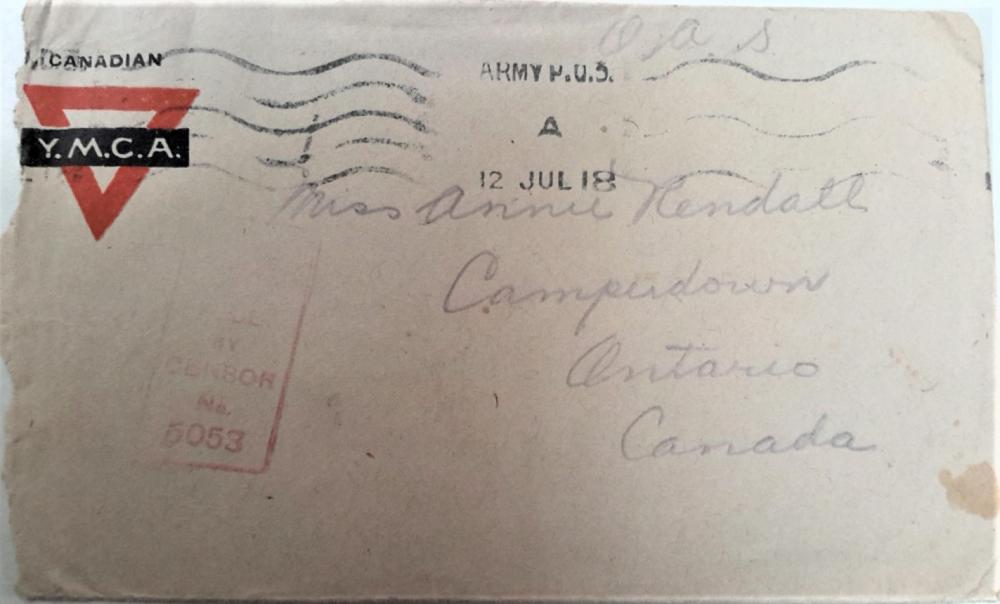 O. a. s
CANADIAN
Y.M.C.A.
ARMY P.O.S.
A
12 JUL 18
Miss Annie Kendall
Camperdown
Ontario
Canada
BY
CENSOR
No.
5053